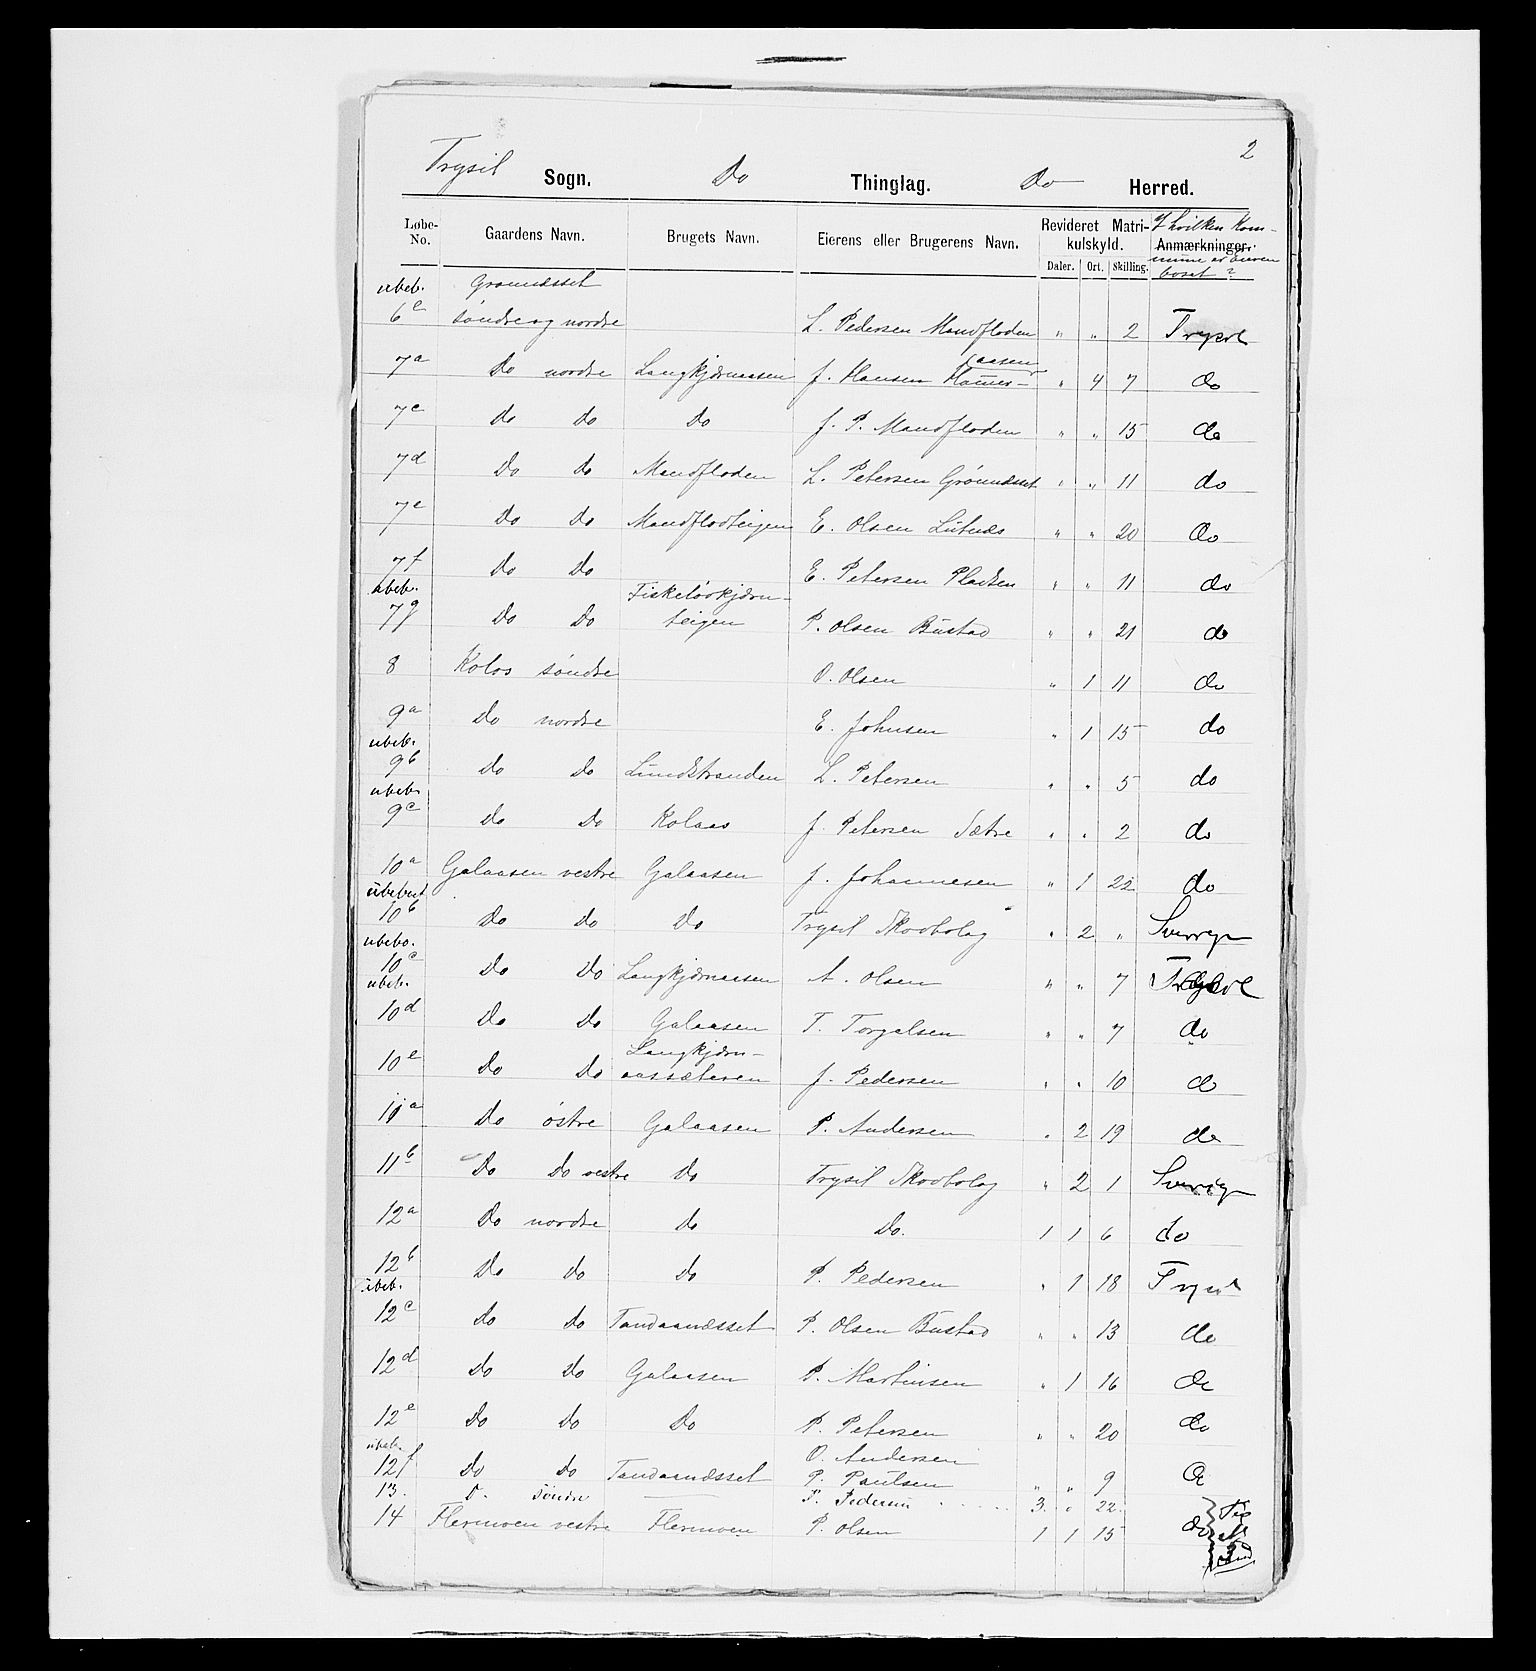 2
Trysil Sogn. Do Thinglag. Do Herred.
Løbe-No. Gaardens Navn. Brugets Navn. Eierens eller Brugerens Navn. Revideret Matrikulskyld. Daler. Ort. Skilling. Anmærkninger. I hvilken Kommune er Eieren bosat?
ubeb. Grønnæsset
6e søndre og nordre L. Pedersen Mandfloden " " 2 Trysil
7a Do nordre Langkjærnaasen J. Hansen aasen " 4 7 do
7c do do Do J. P. Mandfloden " " 15 do
7d Do do Mandfloden L. Petersen Grønnæsset " " 11 do
7e Do do Mandflodteigen E. Olsen Lutnæs " " 20 do
7f Do Do E. Petersen Pladsen " " 11 do
ubeb. Fisketørkjærn-
7g Do Do teigen P. Olsen Bustad " " 21 do
8 Kolos søndre O. Olsen " 1 11 do
9a Do nordre E. Johnsen " 1 15 do
ubeb.
9b Do do Lundstranden L. Petersen " " 5 do
ubeb.
9c Do Do Kolaas J. Petersen Sætre " " 2 do
10a Galaasen vestre Galaasen J. Johannesen " 1 22 do
ubebod
10b Do do Do Trysil Skovbolag " 2 " Sverrige
ubebo.
10c Do Do Langkjærnaasen A. Olsen " " 7 Trysil
ubeb.
10d Do Do Galaasen T. Torgalsen " " 7 do
Langkjærn-
10e Do Do aassæteren J. Pedersen " " 10 do
11a Do østre Galaasen P. Andersen " 2 19 do
11b Do Do vestre Do Trysil Skovbolag " 2 1 Sverige
12a Do nordre do Do. 1 1 6 do
12b Do do do P. Pedersen " 1 18 Trysil
ubeb.
12c do do Tandaanæsset P. Olsen Bustad " " 13 do
12d Do Do Galaasen P. Martinsen " 1 16 do
12e Do Do Do P. Petersen " " 20 do
ubeb. O. Andersen
12f Do Do Tandaanæsset P. Paulsen " " 9 do
13. D. søndre P. Pedersen 3. " 22.
14 Flermoen vestre Flermoen P. Olsen 1 1 15 do